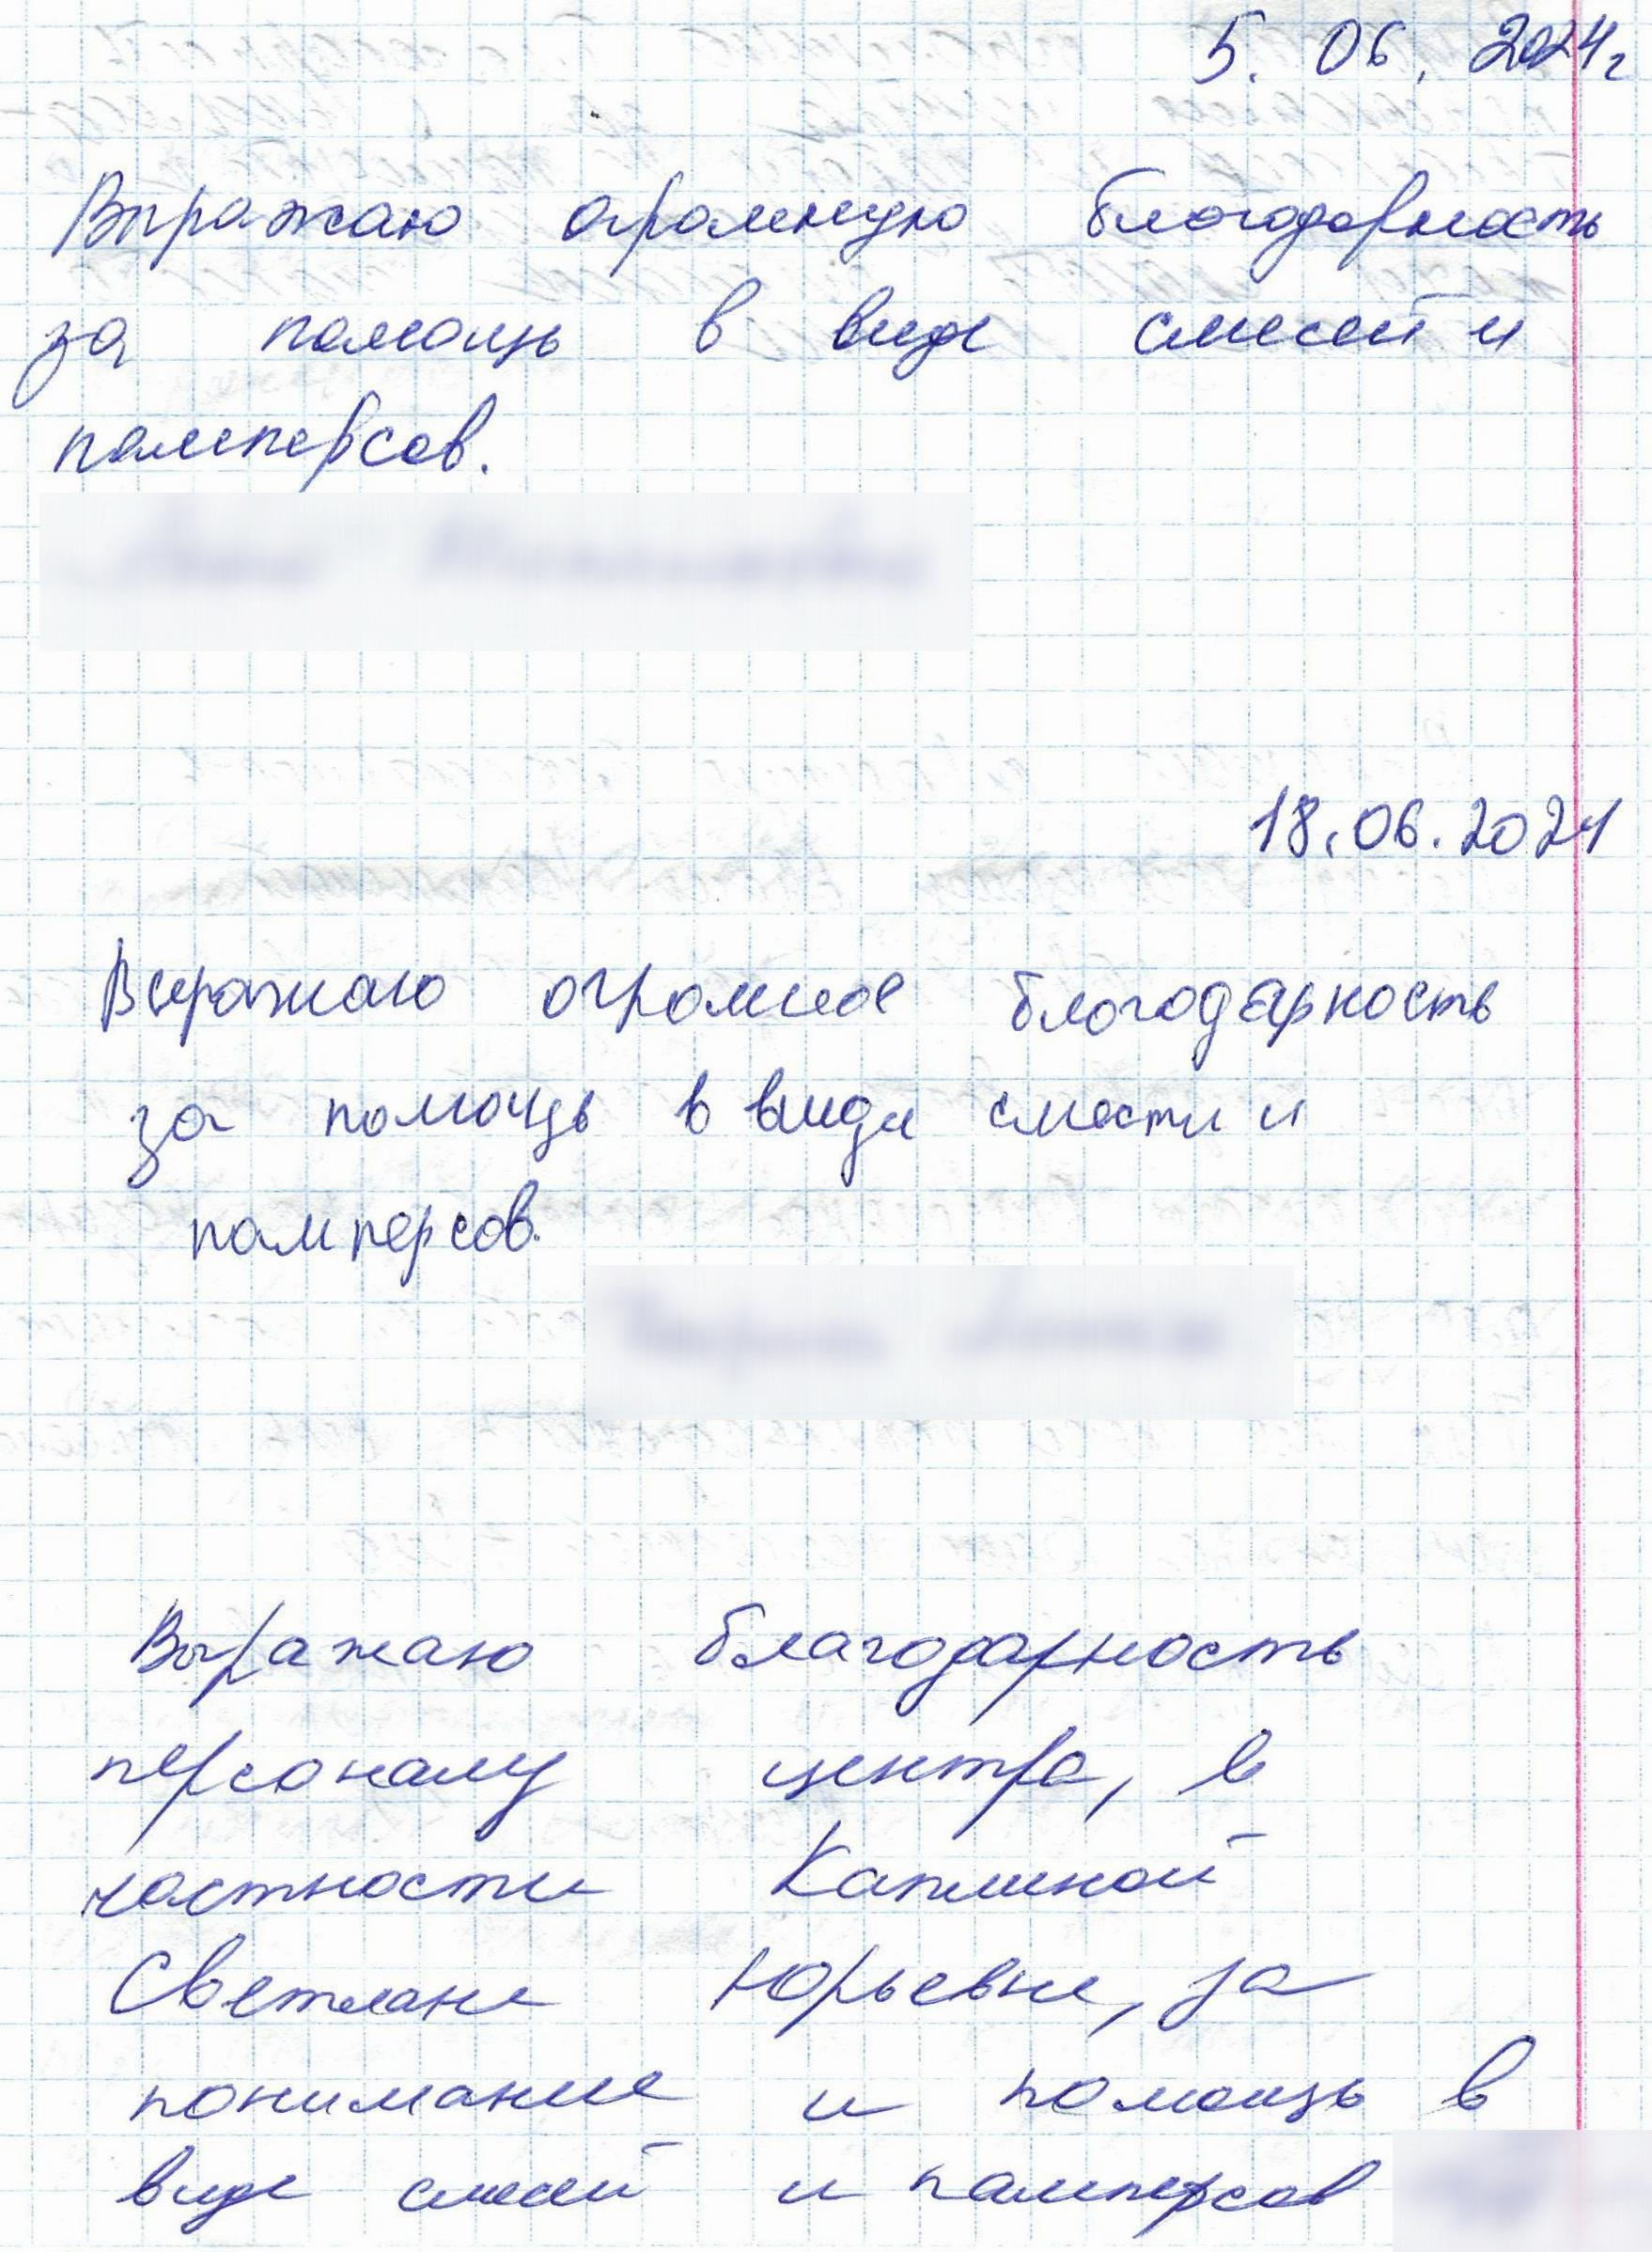 5. 06. 2024г
Выражаю огромную благодарность
за помощь в виде смесей и
памперсов.
18.06.2024
Выражаю огромное благодарность
за помощь в види смести и
памперсов.
Выражаю благодарность
персоналу центра, в
частности Каплиной
Светлане Юрьевне, за
понимание и помощь в
виде смесей и памперсов